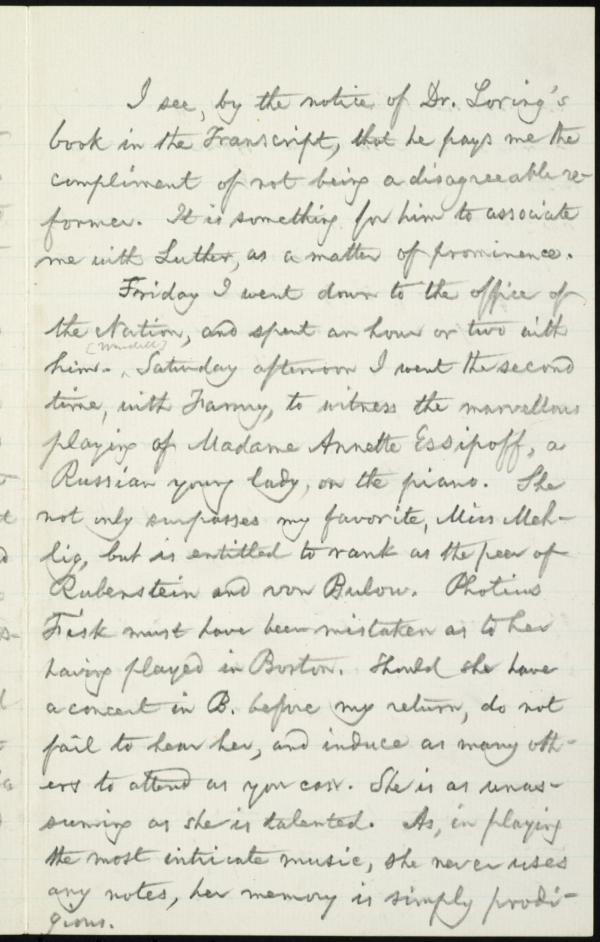 I see, by the notice of Dr. Loring's
book in the Transcript, that he pays me the
compliment of not being a disagreeable re-
former. It is something for him to associate
me with Luther, as a matter of prominence.
Friday I went down to the office of
the Nation, and spent an hour or two with
[Wendell]
him. Saturday afternoon I went the second
time, with Fanny, to witness the marvellous
playing of Madame Annette Essipoff, a
Russian young lady, on the piano. She
not only surpasses my favorite, Miss Meh-
lig, but is entitled to rank as the peer of
Rubenstein and von Bulow. Photius
Fisk must have been mistaken as to her
having played in Boston. Should she have
a concert in B. before my return, do not
fail to hear her, and induce as many oth-
ers to attend as you can. She is as unas-
suming as she is talented. As, in playing
the most intricate music, she never uses
any notes, her memory is simply prodi-
gious.